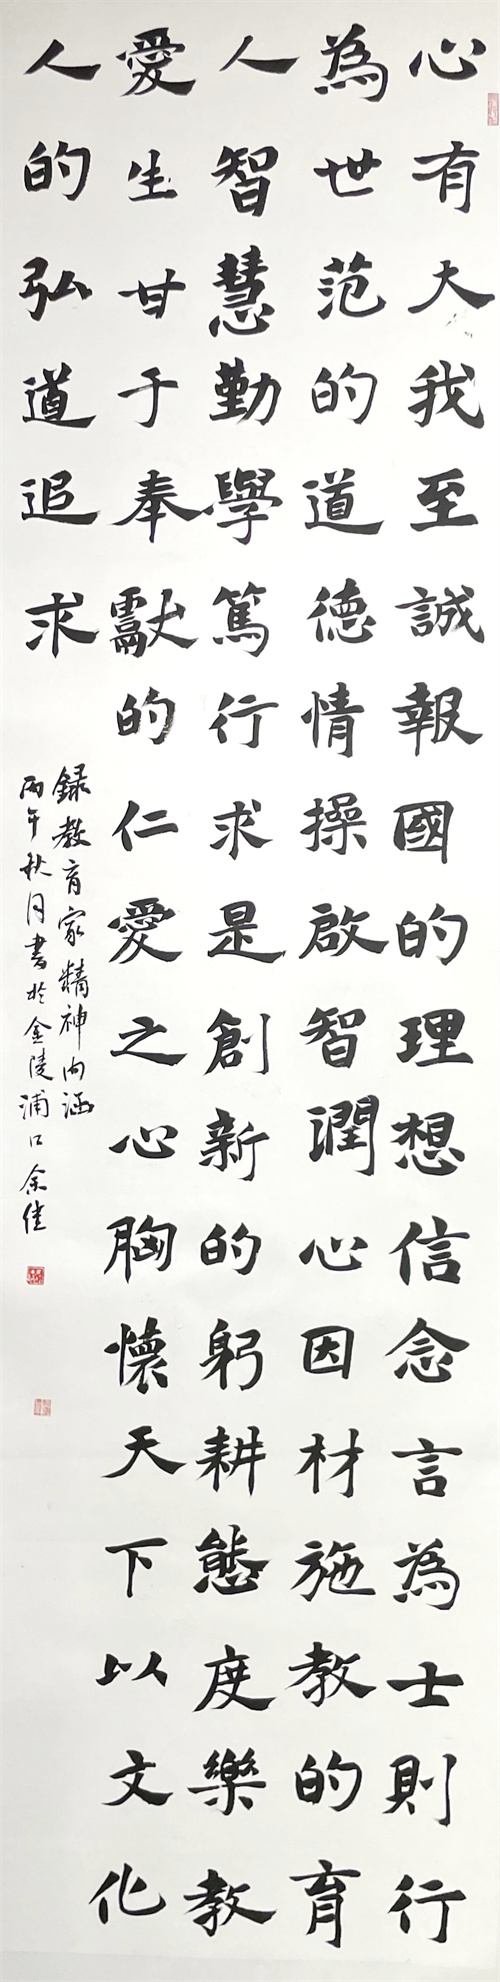 心有大我至誠報國的理想信念言為士則行
為世范的道德情操啟智潤心因材施教的育
人智慧勤學篤行求是創新的躬耕態度樂教
愛生甘于奉獻的仁愛之心胸懷天下以文化
人的弘道追求
録教育家精神內涵
丙午秋月書於金陵浦口余佳